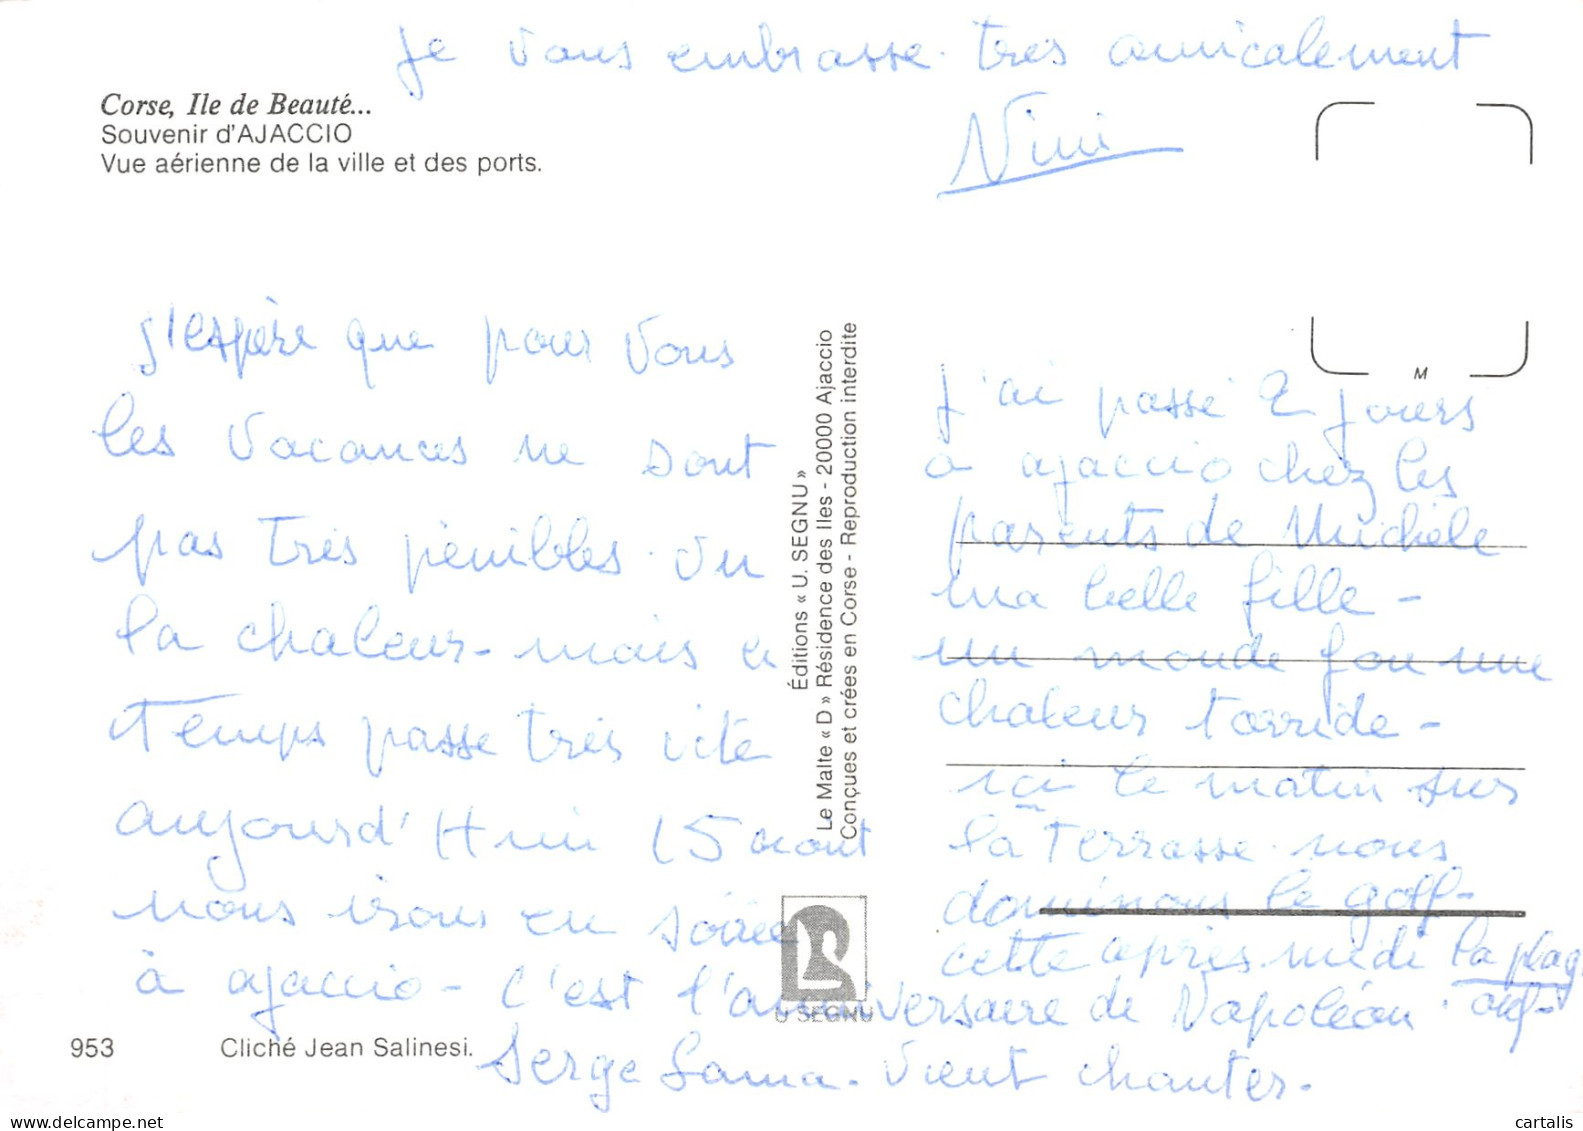 Je vous embrasse très amicalement
Nini
Corse, Ile de Beauté...
Souvenir d'AJACCIO
Vue aérienne de la ville et des ports.
J'espère que pour vous
les vacances ne sont
pas très pénibles. vu
la chaleur - mais le
Temps passe très vite
aujourd'Hui 15 aout
nous irons en soirée
à ajaccio - C'est l'anniversaire de Napoléon.
Serge Lama. vient chanter.
953
Cliché Jean Salinesi.
Éditions « U. SEGNU »
Le Malte « D » Résidence des Iles - 20000 Ajaccio
Conçues et crées en Corse - Reproduction interdite
U SEGNU
M
J'ai passé 2 jours
a ajaccio chez les
parents de Michèle
ma belle fille -
un monde fou une
chaleur torride -
ici le matin sur
la Terrasse. nous
dominons le golf -
cette après. midi la plag
cartalis